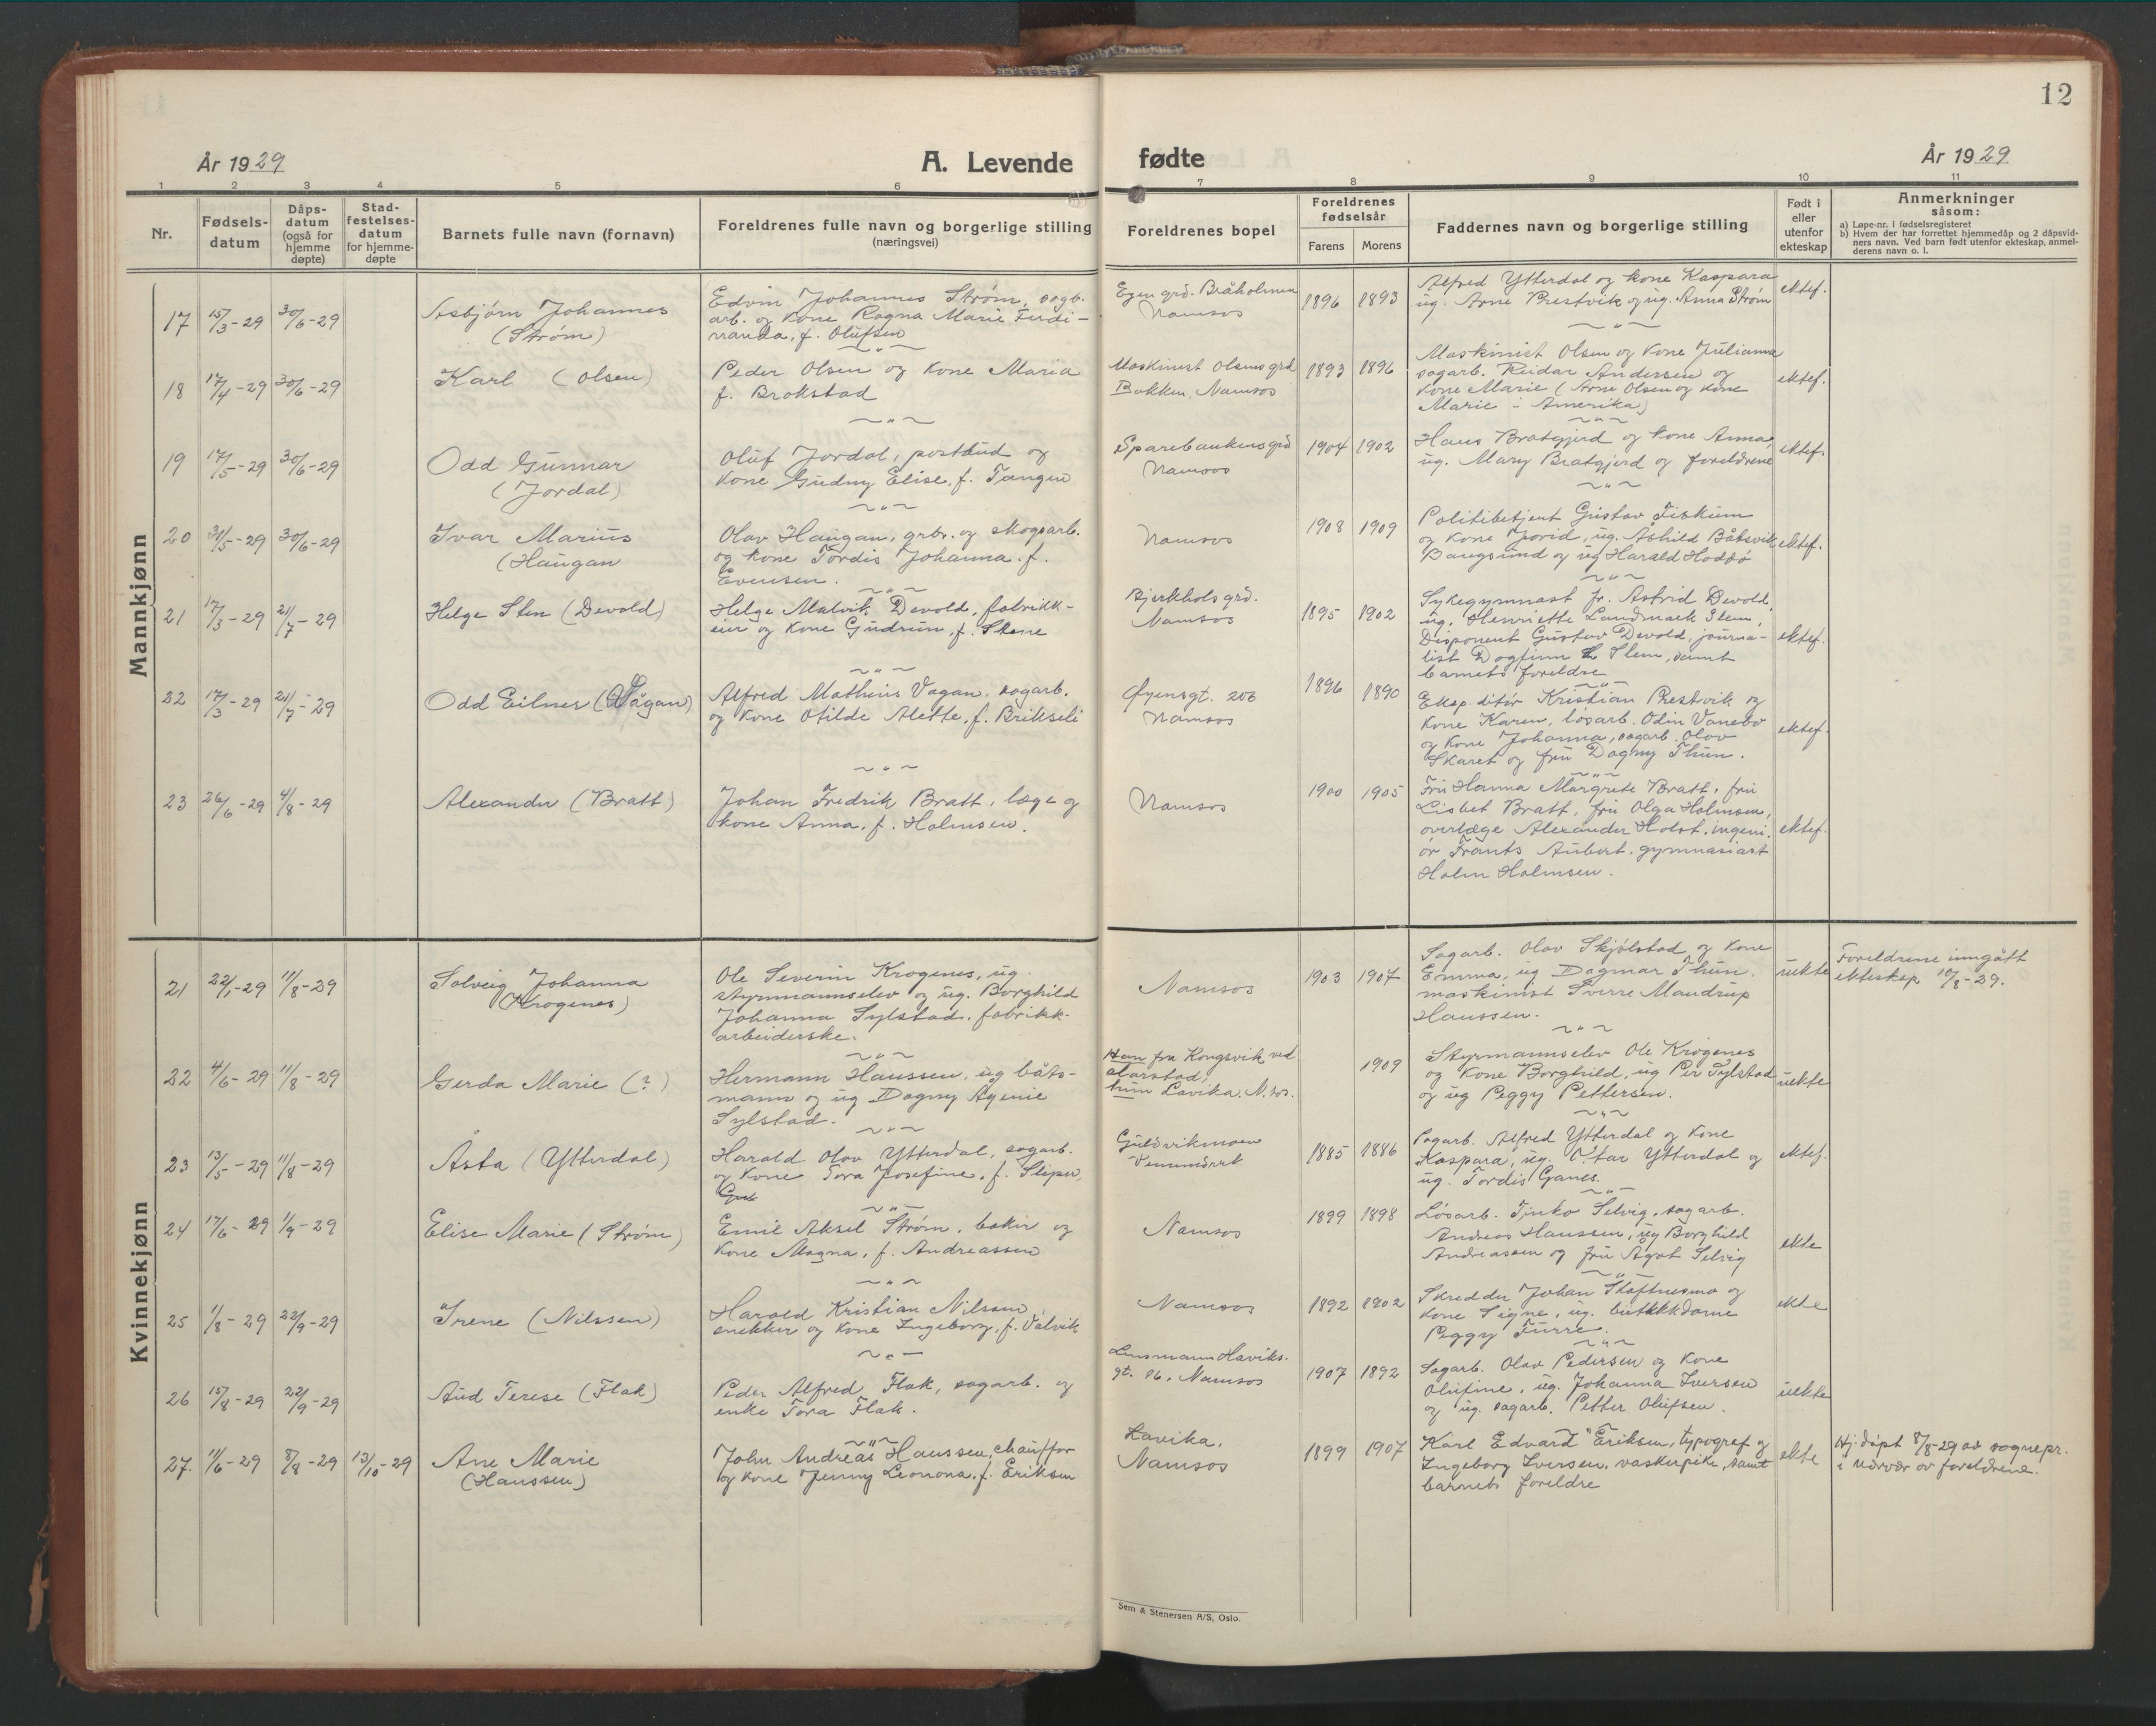 12
År 1929
A. Levende fødte
År 1929
1 2 3 4 5 6 7 8 9 10 11
Nr.
Fødsels-datum
Dåps-datum (også for hjemme døpte)
Stad-festelses-datum for hjemme-døpte
Barnets fulle navn (fornavn)
Foreldrenes fulle navn og borgerlige stilling (næringsvei)
Foreldrenes bopel
Foreldrenes fødselsår
Farens Morens
Faddernes navn og borgerlige stilling
Født i eller utenfor ekteskap
Anmerkninger såsom:
a) Løpe-nr. i fødselsregisteret
b) Hvem der har forrettet hjemmedåp og 2 dåpsvid-
ners navn. Ved barn født utenfor ekteskap, anmel-
derens navn o. l.
Mannkjønn
17 15/3-29 30/6-29
Asbjørn Johannes
(Strøm)
Edvin Johannes Strøm, sagb.
arb. og kone Ragna Marie Ferdi-
nanda, f. Olufsen
Egen grd. Bråholmen
Namsos
1896 1893
Alfred Ytterdal og kone Kaspara
ug. Arne Prestvik og ug. Anna Strøm
ektef.
18 17/4-29 30/6-29
Karl (Olsen)
Peder Olsen og kone Maria
f. Brokstad
Maskinist Olsens grd
Bakken, Namsos
1893 1896
Maskinist Olsen og kone Julianne
sagarb. Reidar Andersen og
kone Marie (Arne Olsen og kone
Marie i Amerika)
ektef.
19 17/5-29 30/6-29
Odd Gunnar
(Jordal)
Oluf Jordal, postbud og
kone Gudny Elise, f. Tangen
Sparebankens grd
Namsos
1904 1902
Hans Bratgjerd og kone Anna,
ug. Mary Bratgjerd og foreldrene
ektef.
20 31/5-29 30/6-29
Ivar Marius
(Haugan
Olav Haugan, grbr. og skogsarb.
og kone Tordis Johanna f.
Evensen.
Namsos
1908 1909
Politibetjent Gustav Fiskum
og kone Jorid, ug. Åshild Båtsvik
Bangsund og ug Harald Hoddø
ektef.
21 17/3-29 21/7-29
Helge Sten (Devold)
Helge Malvik Devold, fabrikk-
eier og kone Gudrun, f. Stene
Bjerkhols grd.
Namsos
1895 1902
Sykegymnast fr. Astrid Devold,
ug. Henriette Landmark Slem,
Disponent Gustav Devold, journa-
list Dagfinn L Slem, samt
barnets foreldre
ektef.
22 17/3-29 21/7-29
Odd Eilner (Vågan)
Alfred Mathius Vagan, sagarb.
og kone Otilde Alette, f. Brikseli
Øyensgt. 206
Namsos
1896 1890
Eksp. ditør Kristian Prestvik og
kone Karen, løsarb. Odin Vanebo
og kone Johanna, sagarb. Olav
Skaret og fru Dagny Thun.
ektef.
23 26/6-29 4/8-29
Alexander (Bratt)
Johan Fredrik Bratt, læge og
kone Anna, f. Holmsen.
Namsos
1900 1905
Fru Hanna Margrete Bratt, fru
Lisbet Bratt, fru Olga Holmsen,
overlæge Alexander Holst, ingeni-
ør Frants Aubert, gymnasiast
Holm Holmsen.
ektef.
Kvinnekjønn
21 22/1-29 11/8-29
Solveig Johanna
(Krogenes)
Ole Severin Krogenes, ug.
styrmannselev og ug. Borghild
Johanna Sylstad, fabrikk-
arbeiderske.
Namsos
1903 1907
Sagarb. Olav Skjølstad og kone
Emma, ug Dagmar Thun,
maskinist Sverre Mandrup
Hanssen.
uekte
Foreldrene inngått
ekteskap 10/8-29.
22 4/6-29 11/8-29
Gerda Marie (?)
Hermann Hanssen, ug båts-
mann og ug Dagny Agenie
Sylstad.
Han fra Kongsvik ved
Harstad,
hun Lavika. N.sos.
1909
Styrmannselev Ole Krogenes
og kone Borghild, ug Per Sylstad
og ug Peggy Pettersen.
uekte
23 13/5-29 11/8-29
Åsta (Ytterdal)
Harald Olav Ytterdal, sagarb.
og kone Tora Josefine, f. Slipen,
Guldvikmoen
Vemundvik
1885 1886
Sagarb. Alfred Ytterdal og kone
Kaspara, ug. Ottar Ytterdal og
ug. Tordis Ganes.
ektef.
24 17/6-29 1/9-29
Elise Marie (Strøm)
Emil Aksel Strøm, baker og
kone Magna, f. Andreassen
Namsos
1899 1898
Løsarb. Tjuko Selvig, sagarb.
Andreas Hanssen, ug Borghild
Andreassen og fru Ågot Selvig
ekte
25 1/8-29 22/9-29
Irene (Nilssen)
Harald Kristian Nilssen,
snekker og kone Ingeborg, f. Valvik
Namsos
1892 1902
Skredder Johan Skaftnesmo og
kone Signe, ug. butikkdame
Peggy Furre.
ekte
26 15/8-29 22/9-29
Aud Terese (Flak)
Peder Alfred Flak, sagarb. og
enke Tora Flak.
Lensmann Haviks-
gt. 86, Namsos
1907 1892
Sagarb. Olav Pedersen og kone
Olufine, ug. Johanna Iversen
og ug. sagarb. Petter Olufsen.
uekte
27. 11/6-29 8/8-29 13/10-29
Ane Marie
(Hanssen)
John Andreas Hanssen, chauffør
og kone Jenny Leonona, f. Eriksen
Lavika,
Namsos
1899 1907
Karl Edvard Eriksen, typograf og
Ingeborg Iversen, vaskepike, samt
barnets foreldre
ekte
Hj. døpt 8/8-29 av sognepr.
i nærvær av foreldrene.
Sem & Stenersen A/S, Oslo.